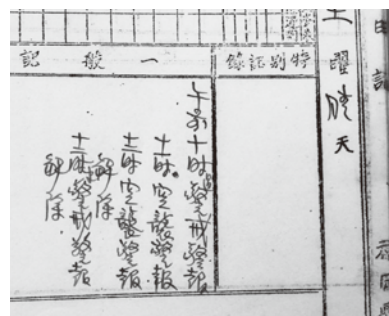 土曜 晴 天
特別記錄
一般記
午前十時警戒警報
十一時空襲警報
十一時空襲警報
解除
十一時警戒警報
解除